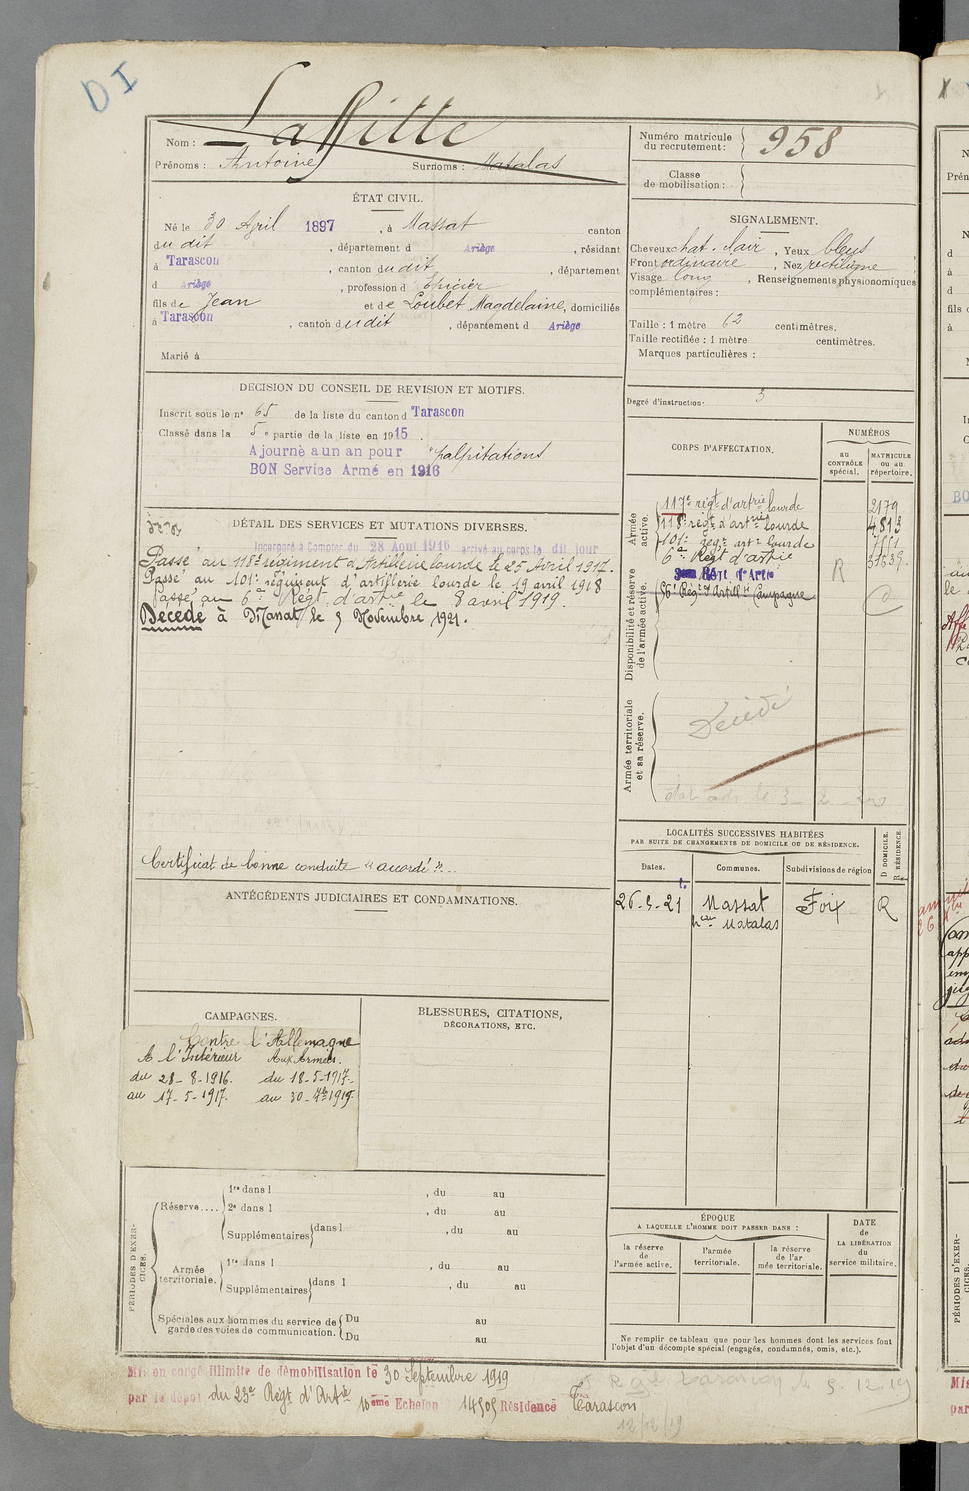 DI
Nom : Laffitte
Prénoms : Antoine Surnoms : Matalas
Numéro matricule du recrutement : 958
Classe de mobilisation :
ÉTAT CIVIL.
Né le 30 Avril 1897, à Massat canton
du dit, département d Ariège, résidant
à Tarascon, canton du dit, département
d Ariège, profession d épicier
fils de Jean et de Loubet Magdelaine, domiciliés
à Tarascon, canton du dit, département d Ariège
Marié à
SIGNALEMENT.
Cheveux chat. clair, Yeux bleus
Front ordinaire, Nez rectiligne
Visage long, Renseignements physionomiques
complémentaires :
Taille : 1 mètre 62 centimètres.
Taille rectifiée : 1 mètre centimètres.
Marques particulières :
Degré d'instruction : 3
DÉCISION DU CONSEIL DE REVISION ET MOTIFS.
Inscrit sous le n° 65 de la liste du canton d Tarascon
Classé dans la 5e partie de la liste en 1915.
Ajourné a un an pour palpitations
BON Service Armé en 1916
DÉTAIL DES SERVICES ET MUTATIONS DIVERSES.
Incorporé à Compter du 28 Aout 1916 arrivé au corps le dit jour
Passé au 118e régiment d'Artillerie lourde le 25 Avril 1917.
Passé au 101e régiment d'artillerie lourde le 19 avril 1918
Passé au 6e Régt d'artie le 8 avril 1919.
Décédé à Massat le 5 Novembre 1921.
Certificat de bonne conduite "accordé"...
CORPS D'AFFECTATION.
NUMÉROS
au CONTRÔLE spécial.
MATRICULE ou au répertoire.
Armée active.
117e régt d'artrie lourde 2179
118e régt d'artrie lourde
101e régt artie lourde
6e Régt d'artie
Régt d'Artie
Régt d'Artill Campagne
R
Disponibilité et réserve de l'armée active.
Armée territoriale et sa réserve.
Décédé
LOCALITÉS SUCCESSIVES HABITÉES
PAR SUITE DE CHANGEMENTS DE DOMICILE OU DE RÉSIDENCE.
Dates. Communes. Subdivisions de région
D DOMICILE. R RÉSIDENCE.
26-5-21 Massat Foix R
hau Matalas
ANTÉCÉDENTS JUDICIAIRES ET CONDAMNATIONS.
CAMPAGNES.
Contre l'Allemagne
A l'Intérieur Aux Armées.
du 28-8-1916. du 18-5-1917-
au 17-5-1917. au 30-7bre 1919
BLESSURES, CITATIONS,
DÉCORATIONS, ETC.
PÉRIODES D'EXERCICES.
Réserve....
1re dans l , du au
2e dans l , du au
Supplémentaires dans l , du au
Armée territoriale.
1re dans l , du au
Supplémentaires dans l , du au
Spéciales aux hommes du service de garde des voies de communication.
Du au
Du au
ÉPOQUE
A LAQUELLE L'HOMME DOIT PASSER DANS :
la réserve de l'armée active.
l'armée territoriale.
la réserve de l'armée territoriale.
DATE de LA LIBÉRATION du service militaire.
Ne remplir ce tableau que pour les hommes dont les services font
l'objet d'un décompte spécial (engagés, condamnés, omis, etc.).
Mis en congé illimité de démobilisation le 30 Septembre 1919
par le dépot du 23e Régt d'Artie 10ème Echelon 14505 Résidence Tarascon
12/12/19